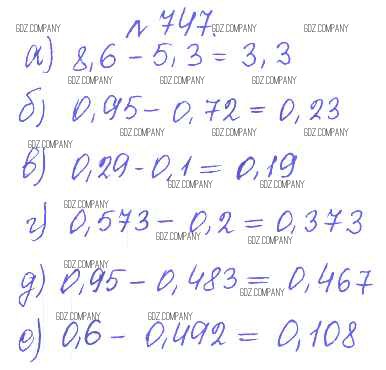 № 747.
GDZ.COMPANY GDZ.COMPANY GDZ.COMPANY
а) 8,6 - 5,3 = 3,3
GDZ.COMPANY GDZ.COMPANY GDZ.COMPANY
б) 0,95 - 0,72 = 0,23
GDZ.COMPANY GDZ.COMPANY GDZ.COMPANY
GDZ.COMPANY
в) 0,29 - 0,1 = 0,19
GDZ.COMPANY GDZ.COMPANY
GDZ.COMPANY
г) 0,573 - 0,2 = 0,373
GDZ.COMPANY GDZ.COMPANY
GDZ.COMPANY
д) 0,95 - 0,483 = 0,467
GDZ.COMPANY
GDZ.COMPANY GDZ.COMPANY
е) 0,6 - 0,492 = 0,108